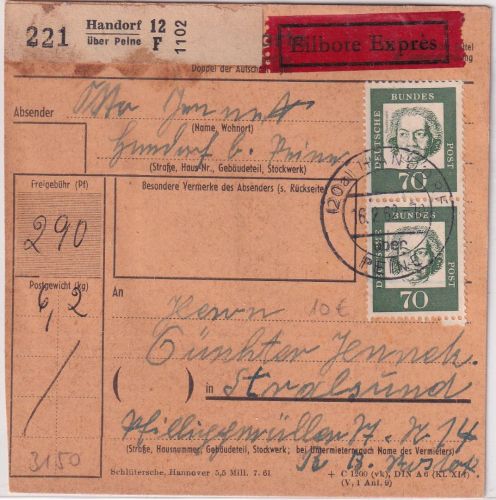 221 Handorf 12 über Peine F 1102
Eilbote Exprès
Doppel der
Absender Otto Jennek
(Name, Wohnort)
Handorf b. Peine
(Straße, Haus-Nr., Gebäudeteil, Stockwerk)
Freigebühr (Pf)
Besondere Vermerke des Absenders (s. Rückseite)
290
DEUTSCHE BUNDES POST 70
DEUTSCHE BUNDES POST 70
(20a) HANDORF 16.2. über PEINE
Postgewicht (kg)
6,2
An Herrn 10 €
Günther Jennek
( ) in Stralsund
(Straße, Hausnummer, Gebäudeteil, Stockwerk; bei Untermietern auch Name des Vermieters)
3150
Schlütersche, Hannover 5,5 Mill. 7. 61
+ C 1200 (vk), DIN A 6 (Kl. XII)
(V, 1 Anl. 9)